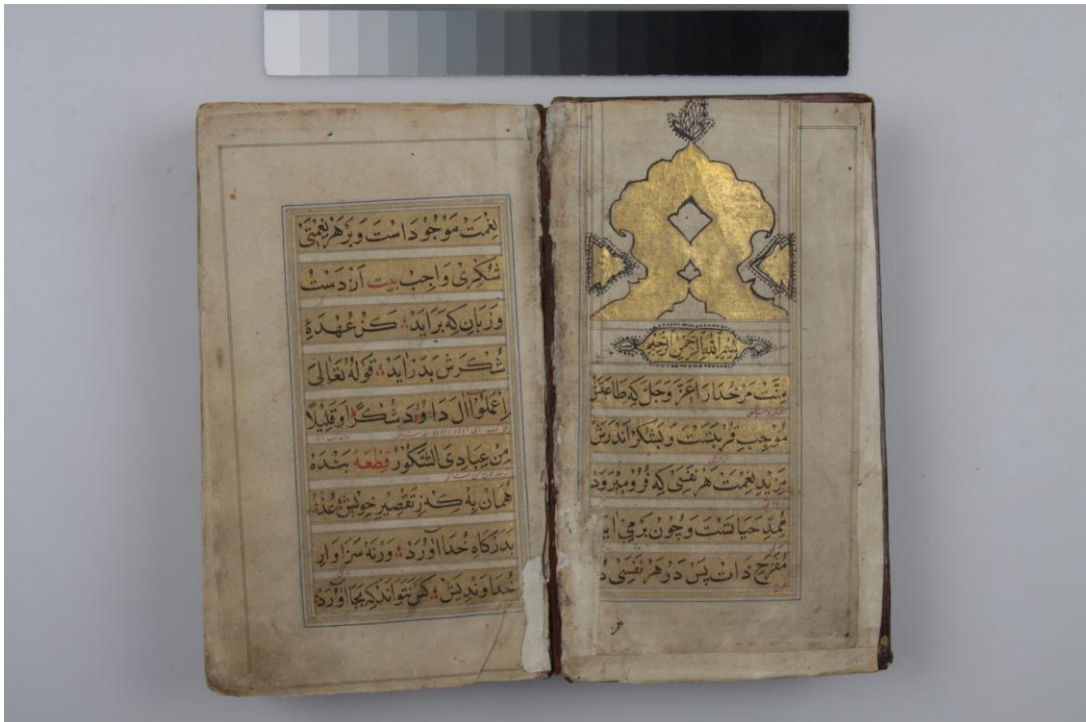 بسم الله الرحمن الرحیم
مِنَّتْ مَرْ خُدَارَا عَزَّ وَجَلَّ کِه طَاعَتَشْ
مُوْجِبِ قُرْبَتَسْت وَبَشُکْر اَنْدَرَشْ
مَزِیْدِ نِعْمَت هَرْ نَفَسِیْ کِه فُرُوْ مِیْرَوَدْ
مُمِدِّ حَیَاتَسْت وَچُوْن بَرْمِیْ اٰیَد
مُفَرِّحِ ذَات پَسْ دَرْ هَرْ نَفَسِیْ دُ
نِعْمَتْ مَوْجُوْدَاسْت وَبَرْ هَرْ نِعْمَتِیْ
شُکْرِیْ وَاجِب بیت اَزْ دَسْتُ
وَزَبَانِ کِه بَرَایَدْ ؞ کَزْ عُهْدَهٔ
شُکْرَشْ بَدَرْ اَیَدْ ؞ قَوْلُهُ تَعَالٰی
اِعْمَلُوْا اٰلَ دَاوٗدَ شُکْرًا وَقَلِیْلًا
مِنْ عِبَادِیَ الشَّکُوْرُ قِطْعَهْ بَنْدَهْ
هَمَانْ بِهْ کِه زِتَقْصِیْرِ خِوِیْش ؞ عُذْرْ
بَدَرْکَاهِ خُدَا اٰوُرَدْ ؞ وَرْنَهْ سَزَاوَارِ
خُدَاوَنْدِیَشْ ؞ کَسْ نَتَوَانَدْ کِه بَجَا اٰوُرَدْ